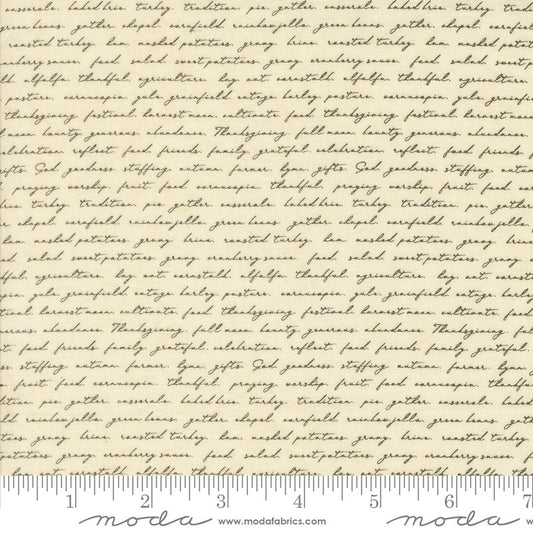 casserole. baked brie. turkey. tradition. pie. gather. casserole. baked brie. turkey. tradition.
green beans. gather. chapel. cornfield. rainbow jello. green beans. gather. chapel. cornfield.
roasted turkey. ham. mashed potatoes. gravy. brine. roasted turkey. ham. mashed
cranberry sauce. food. salad. sweet potatoes. gravy. cranberry sauce. food. salad. sweet
alfalfa. thankful. agriculture. hay. oat. cornstalk. alfalfa. thankful. agriculture.
pasture. cornucopia. yule. grainfield. barley. pasture. cornucopia. yule.
thanksgiving. festival. harvest moon. cultivate. food. thanksgiving. festival. harvest moon
bounty. generous. abundance. Thanksgiving. full moon. bounty. generous. abundance.
celebration. reflect. food. friends. family. grateful. celebration. reflect. food. friends.
gifts. God. goodness. stuffing. autumn. farmer. hymn. gifts. God. goodness. stuffing.
praying. worship. fruit. food. cornucopia. thankful. praying. worship. fruit. food.
turkey. tradition. pie. gather. casserole. baked brie. turkey. tradition. pie. gather
chapel. cornfield. rainbow jello. green beans. gather. chapel. cornfield. rainbow jello.
ham. mashed potatoes. gravy. brine. roasted turkey. ham. mashed potatoes. gravy.
salad. sweet potatoes. gravy. cranberry sauce. food. salad. sweet potatoes. gravy.
agriculture. hay. oat. cornstalk. alfalfa. thankful. agriculture. hay. oat.
yule. grainfield. barley. pasture. cornucopia. yule. grainfield.
harvest moon. cultivate. food. thanksgiving. festival. harvest moon. cultivate. food.
abundance. Thanksgiving. full moon. bounty. generous. abundance. Thanksgiving.
food. friends. family. grateful. celebration. reflect. food. friends. family. grateful.
stuffing. autumn. farmer. hymn. gifts. God. goodness. stuffing. autumn. farmer. hymn.
fruit. food. cornucopia. thankful. praying. worship. fruit. food. cornucopia.
tradition. pie. gather. casserole. baked brie. turkey. tradition. pie. gather. casserole.
cornfield. rainbow jello. green beans. gather. chapel. cornfield. rainbow jello. green beans.
gravy. brine. roasted turkey. ham. mashed potatoes. gravy. brine. roasted turkey.
potatoes. gravy. cranberry sauce. food. salad. sweet potatoes. gravy. cranberry sauce. food.
hay. oat. cornstalk. alfalfa. thankful. agriculture. hay. oat. cornstalk. alfalfa.
1 2 3 4 5 6 7
moda www.modafabrics.com moda